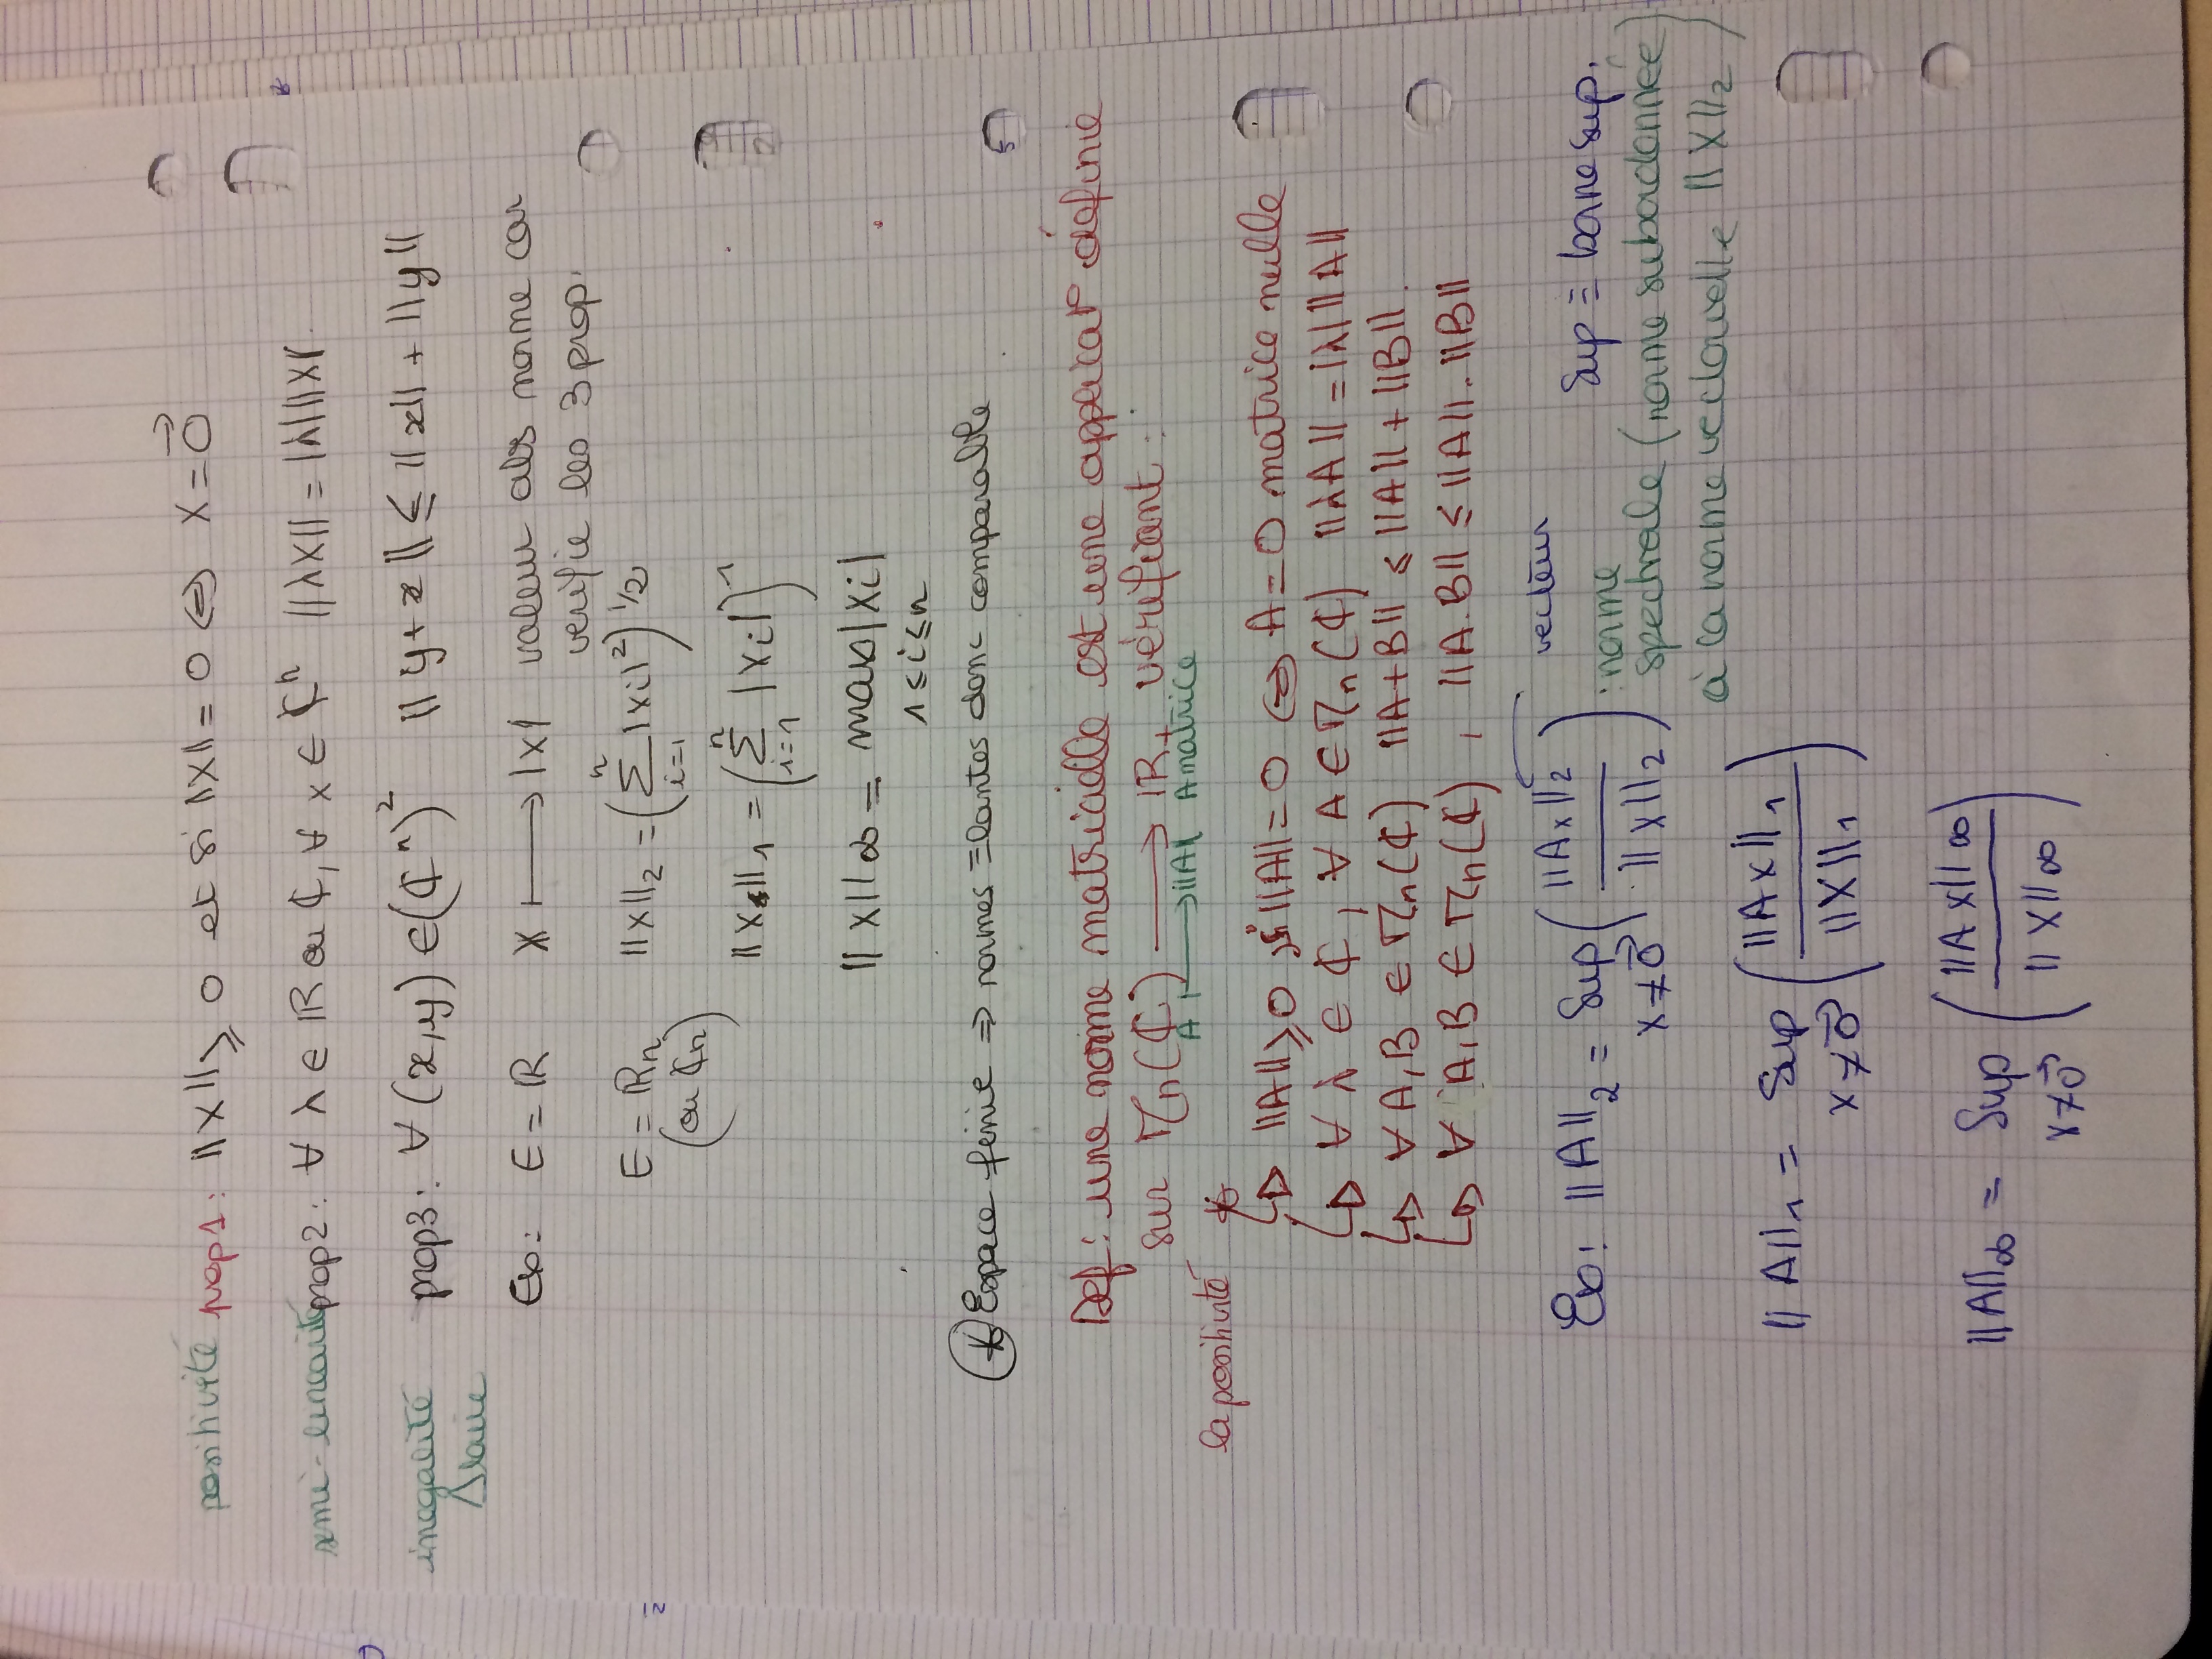 positivité prop1 : ||X|| ⩾ 0 et si ||X|| = 0 ⇔ X = 0⃗
semi-linearité prop2 : ∀ λ ∈ ℝ ou ℂ, ∀ x ∈ ℂⁿ ||λX|| = |λ| ||X||
inegalité prop3 : ∀ (x,y) ∈ (ℂⁿ)² ||y+x|| ⩽ ||x|| + ||y||
Δlaire
Ex : E = ℝ X ⟼ |x| valeur abs norme car
verifie les 3 prop.
E = ℝn ||X||₂ = (∑_{i=1}^{n} |xi|²)^{1/2}
(ou ℂn)
||X||₁ = (∑_{i=1}^{n} |xi|)^1
||X||∞ = max |xi|
1 ⩽ i ⩽ n
* Espace finie ⇒ normes ≡lantes donc comparable
Def : une norme matricielle est une applicat° définie
sur Mn(ℂ) ⟶ ℝ+ vérifiant :
A ⟼ ||A|| A matrice
la positivité *
↳ ||A|| ⩾ 0, si ||A|| = 0 ⇔ A = 0 matrice nulle
↳ ∀ λ ∈ ℂ, ∀ A ∈ Mn(ℂ) ||λA|| = |λ| ||A||
↳ ∀ A,B ∈ Mn(ℂ) ||A+B|| ⩽ ||A|| + ||B||.
↳ ∀ A,B ∈ Mn(ℂ), ||A.B|| ⩽ ||A||.||B||
Ex : ||A||₂ = Sup_{X≠0⃗} (||Ax||₂ / ||X||₂) vecteur Sup ≡ borne sup.
: norme
spectrale (norme subordonnée
à la norme vectorielle ||X||₂)
||A||₁ = Sup_{X≠0⃗} (||AX||₁ / ||X||₁)
||A||∞ = Sup_{X≠0⃗} (||AX||∞ / ||X||∞)